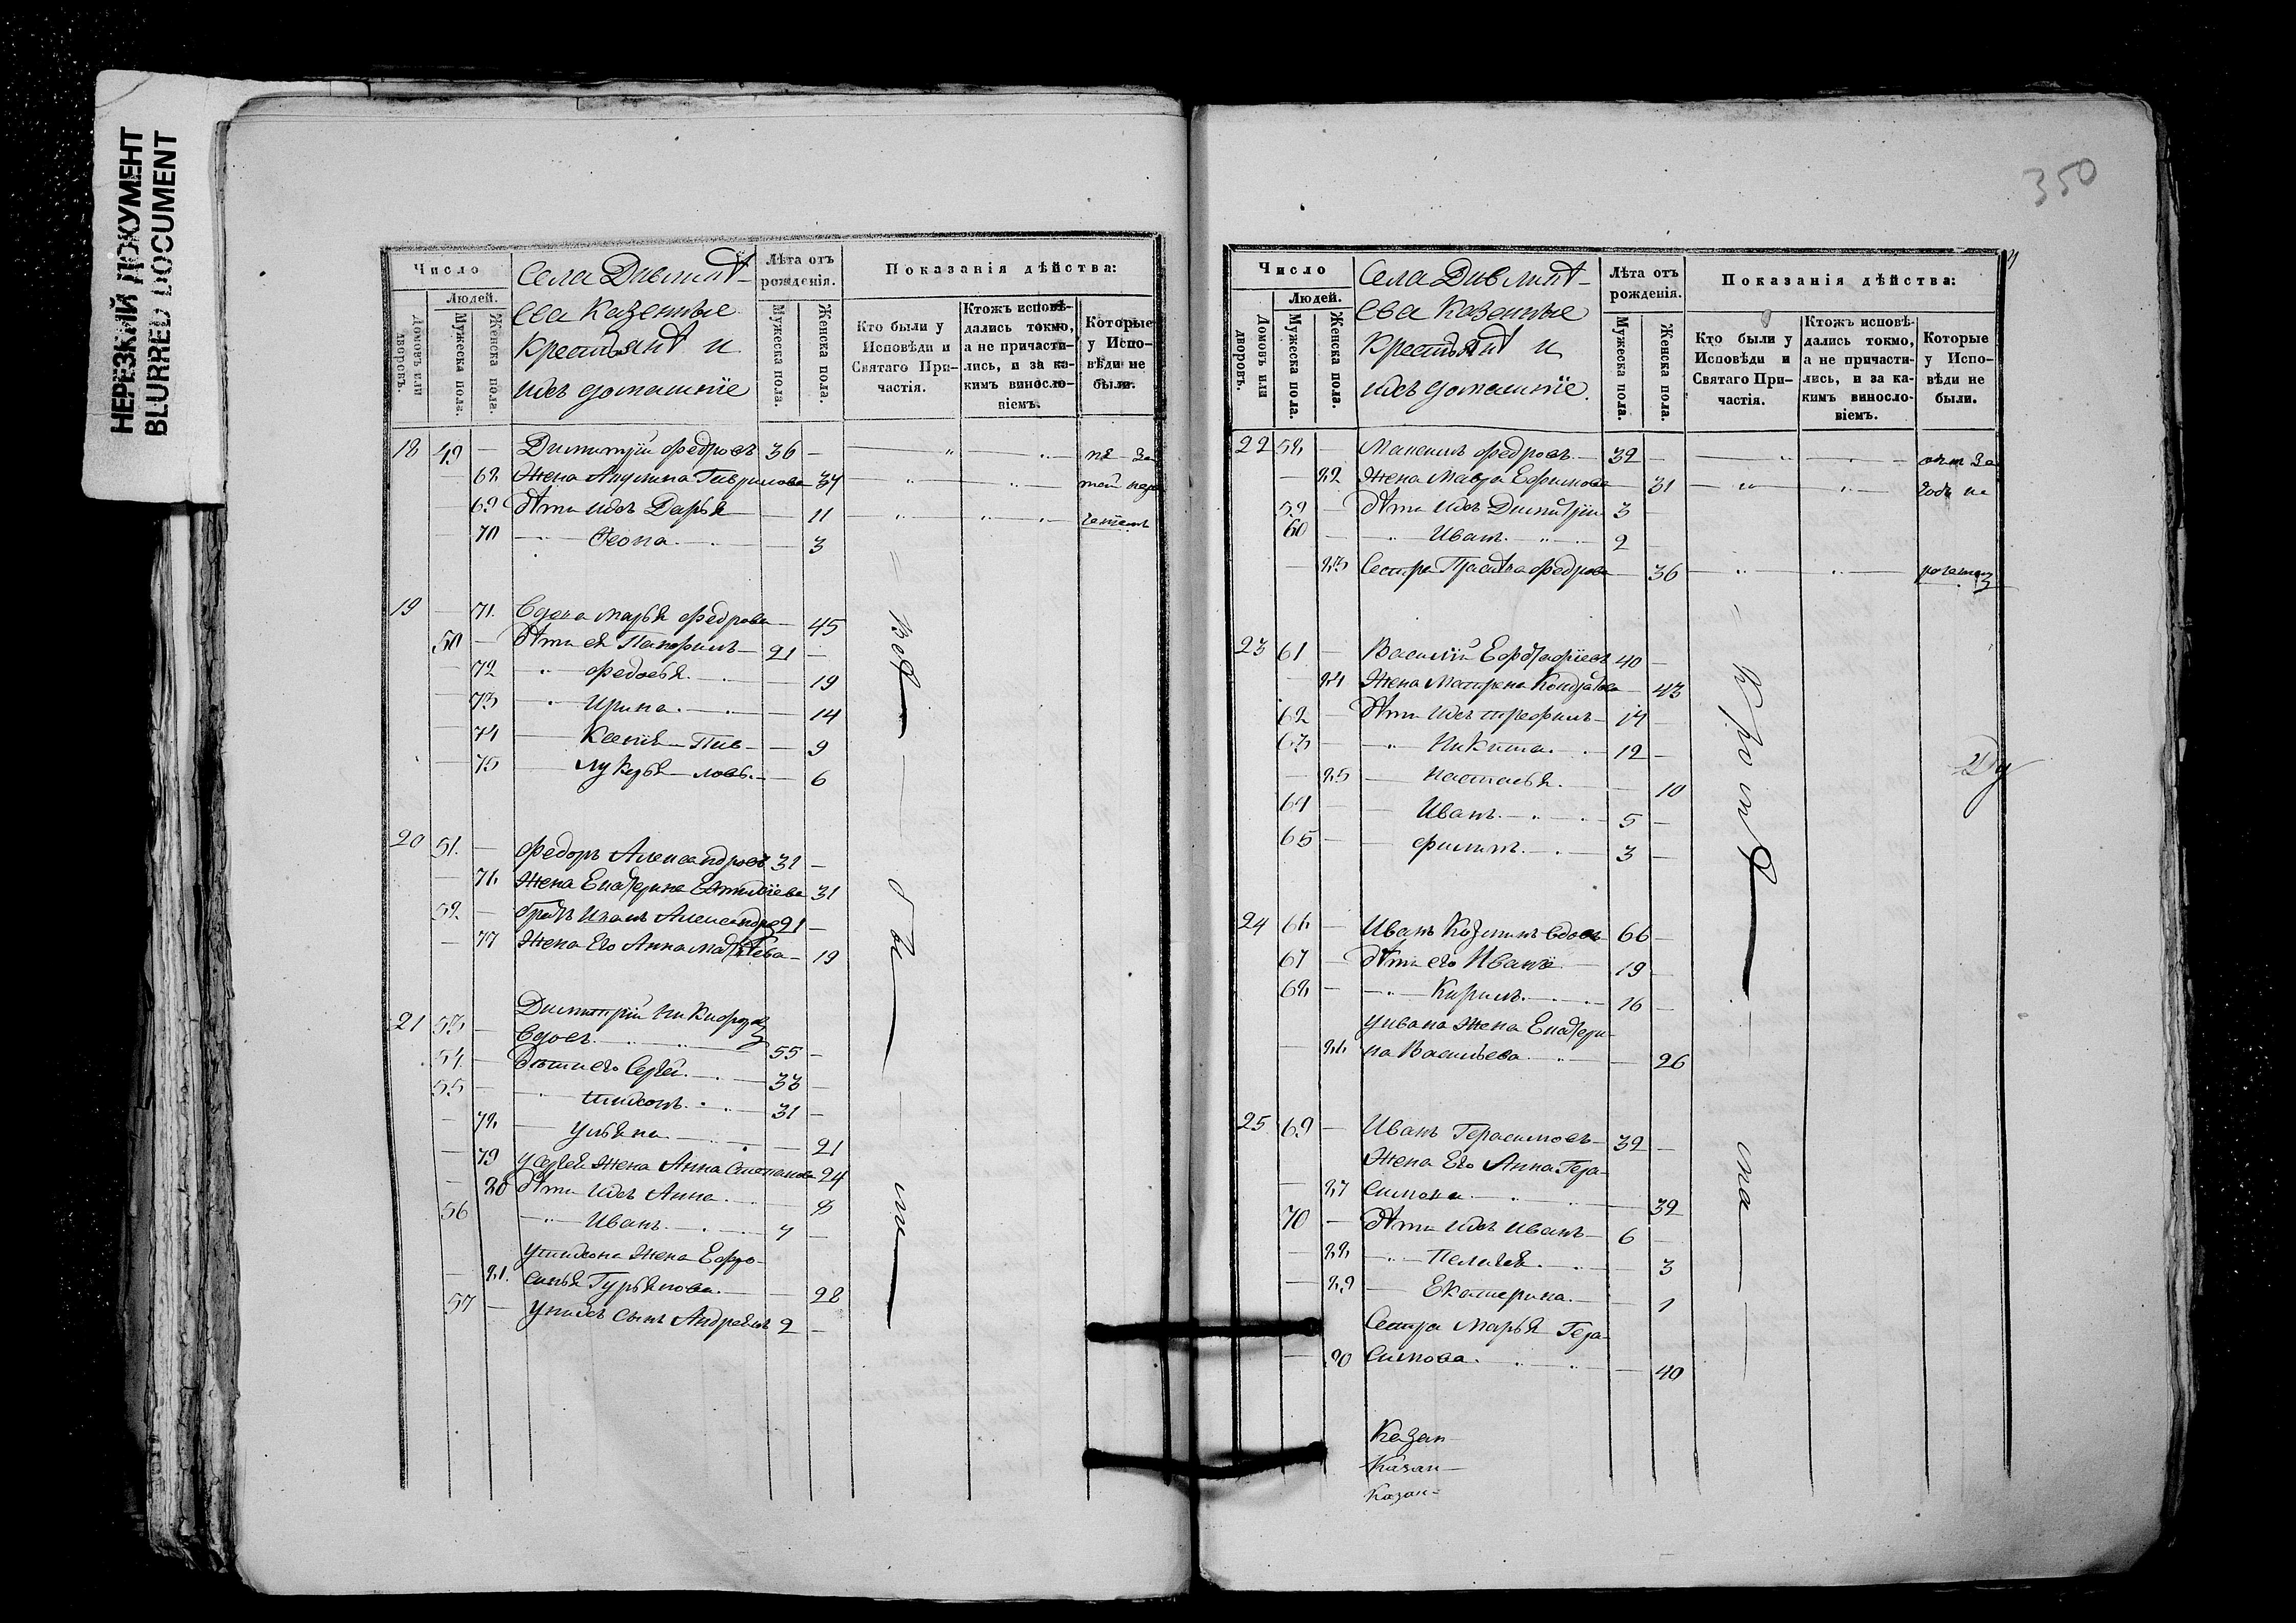 НЕРЕЗКИЙ ДОКУМЕНТ
BLURRED DOCUMENT
Число
Людей.
Домовъ или дворовъ.
Мужеска пола.
Женска пола.
Села
ева Казенные
Крестьянѣ и
ихъ домашніе
Лѣта отъ рожденія.
Мужеска пола.
Женска пола.
Показанія дѣйства:
Кто были у Исповѣди и Святаго Причастія.
Ктожъ исповѣдались токмо, а не причастились, и за какимъ винословіемъ.
Которые у Исповѣди не были.
18 49 — Димитрій Федровъ 36 —
68 Жена Акулина Гаврилова 34
69 Дѣти ихъ Дарья 11
70 Ѳеона 3
19 — 71. Вдова Марья Федрова 45
50 — Дѣти ея Панфилъ 21 —
72 Федосья 19
73 Ирина 14
74 Ксенія 9
75 Лукерья 6
20 51. — Федоръ Александровъ 31 —
76 Жена Екатерина 31
52 — Братъ Иванъ Александро 21 —
77 Жена Его Анна Матвѣева 19
Димитрій Никифоров
21 53 — Вдовъ 55 —
54 — Дѣти его Сергей 33 —
55 — Тихонъ 31 —
78 Ульяна 21
79 у Сергея Жена Анна Степанова 24
80 Дѣти ихъ Анна 8
56 Иванъ 4 —
у Тихона Жена Ефро-
81. синья Гурьянова 28
57 — у нихъ Сынъ Андреянъ 2 —
350
Число
Людей.
Домовъ или дворовъ.
Мужеска пола.
Женска пола.
Села
ева Казенные
Крестьянѣ и
ихъ домашніе.
Лѣта отъ рожденія.
Мужеска пола.
Женска пола.
Показанія дѣйства:
Кто были у Исповѣди и Святаго Причастія.
Ктожъ исповѣдались токмо, а не причастились, и за какимъ винословіемъ.
Которые у Исповѣди не были.
22 58 — Максимъ Федровъ 32 —
82 Жена Мавра Ефимова 31
59 — Дѣти ихъ Димитрій 3 —
60 — Иванъ 2 —
83 Сестра Федрова 36
23 61 — Василій 40 —
84 Жена Матрена Кондратова 43
62 — Дѣти ихъ Трефилъ 14 —
63 — Никита 12 —
85 — Настасья 10
64 — Иванъ 5 —
65 — Филипъ 3 —
24 66 — Иванъ Козминъ Вдовъ 66 —
67 — Дѣти его Иванъ 19 —
68 — Кирилъ 16 —
у Ивана Жена Екатери-
86 на Васильева 26
25 69 — Иванъ Герасимовъ 32 —
Жена Его Анна Гера-
87 симова 32
70 — Дѣти ихъ Иванъ 6 —
88 Пелагея 3
89 — Екатерина 1
Сестра Марья Гера-
90 симова 40
Казан-
Казан-
Казан-